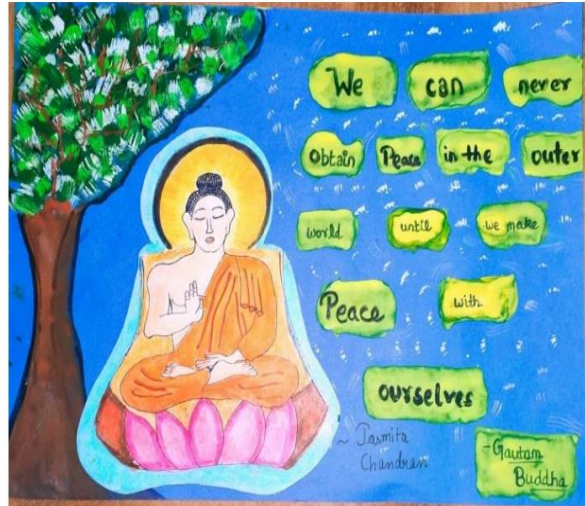 We can never
Obtain Peace in the outer
world until we make
Peace with
ourselves
~ Jasmita
Chandran
-Gautam
Buddha